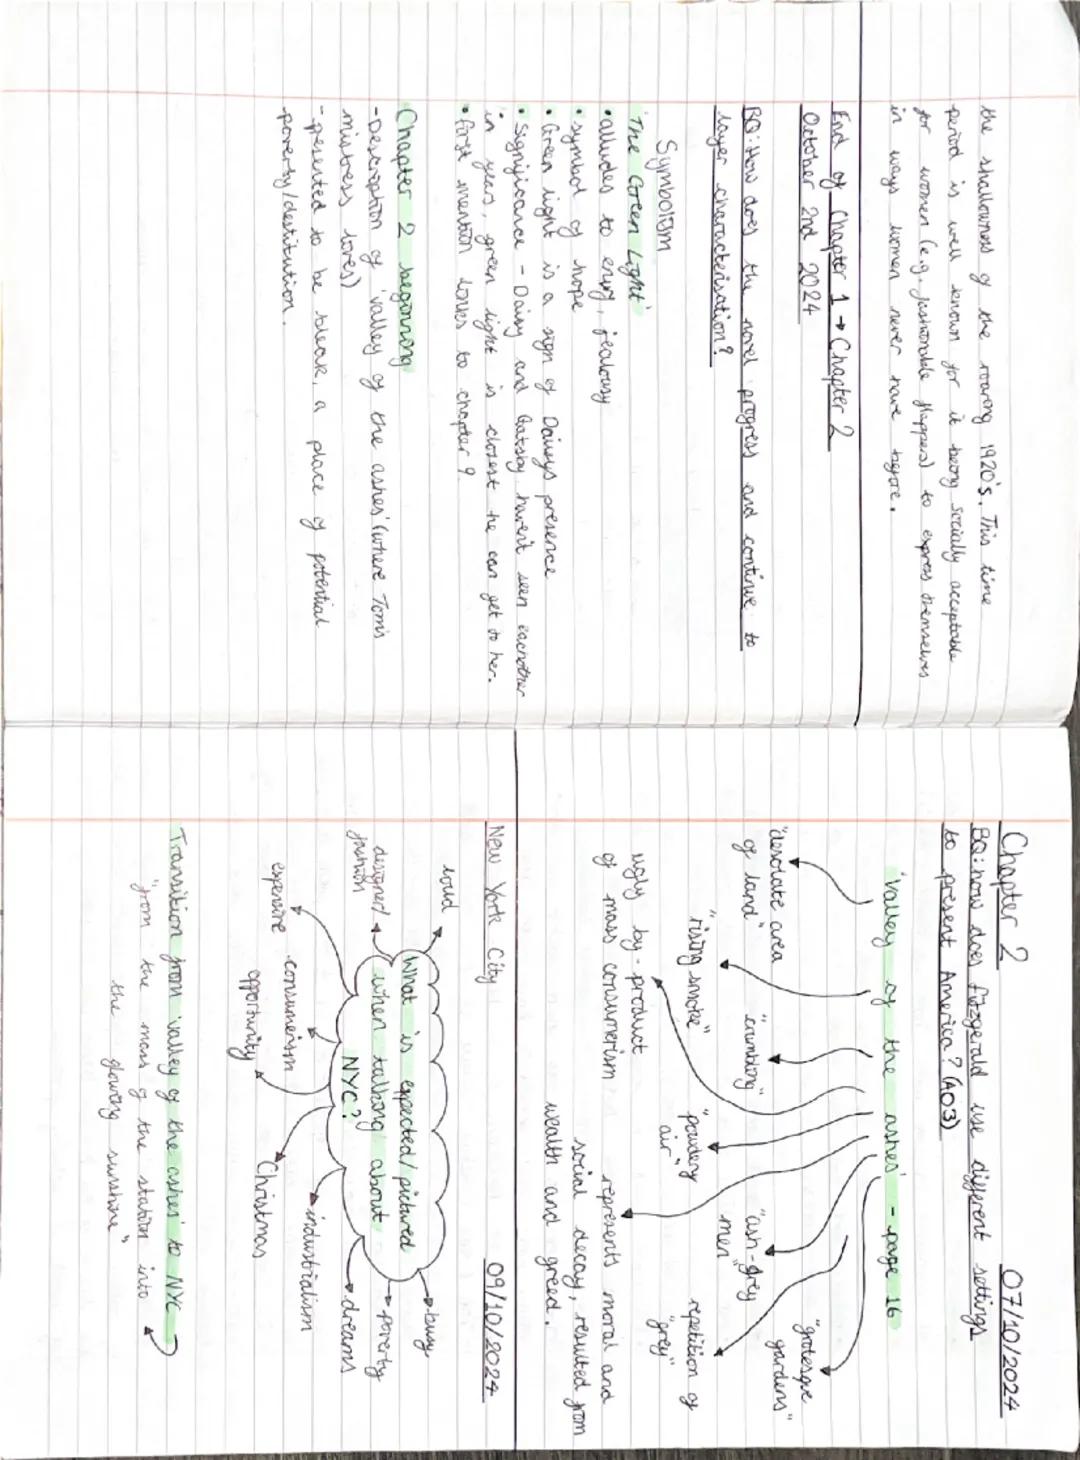 the shallowness of the roaring 1920's. This time
period is well known for it being socially acceptable
for women (e.g. fashionable flappers) to express themselves
in ways women never have before.
End of Chapter 1 → Chapter 2
October 2nd 2024
BQ: How does the novel progress and continue to
layer characterisation?
Symbolism
'The Green Light'
• alludes to envy, jealousy
• symbol of hope
• Green light is a sign of Daisys presence
• Significance - Daisy and Gatsby haven't seen eachother
in years, green light is closest he can get to her.
• first mention links to chapter 9.
Chapter 2 beginning
- Description of 'valley of the ashes' (where Tom's
mistress lives)
- presented to be bleak, a place of potential
poverty/destitution.
Chapter 2 07/10/2024
BQ: how does fitzgerald use different settings
to present America? (AO3)
'valley of the ashes' - page 16
"desolate area
of land"
"rising smoke"
"crumbling"
ugly by-product
of mass consumerism
"powdery
air"
represents moral and
social decay, resulted from
wealth and greed.
"ash-grey
men"
repetition of
"grey"
"grotesque
gardens"
New York City 09/10/2024
What is expected/pictured
when talking about
NYC?
loud
designer/
fashion
expensive
consumerism
opportunity
Christmas
industrialism
dreams
poverty
busy
Transition from 'valley of the ashes' to NYC
"from the mass of the station into
the glowing sunshine"